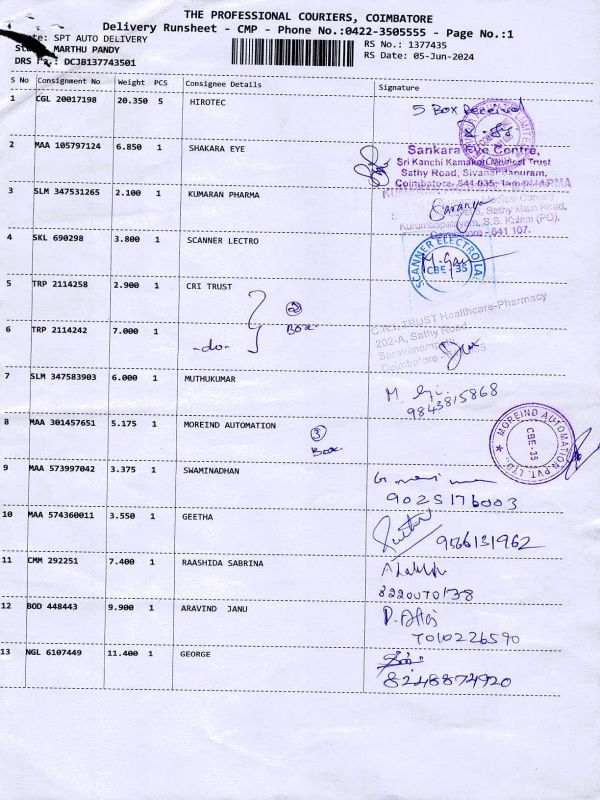 THE PROFESSIONAL COURIERS, COIMBATORE
Delivery Runsheet - CMP - Phone No.:0422-3505555 - Page No.:1
SPT AUTO DELIVERY
MARTHU PANDY
DRS DCJB137743501
RS No.: 1377435
RS Date: 05-Jun-2024
S No Consignment No Weight PCS Consignee Details Signature
1 CGL 20017198 20.350 5 HIROTEC 5 Box Received
2 MAA 105797124 6.850 1 SHAKARA EYE
Sankara Eye Centre,
Sri Kanchi Kamakoti Medical Trust
Sathy Road, Sivanandapuram,
Coimbatore, 641 035,
3 SLM 347531265 2.100 1 KUMARAN PHARMA Saranya
Sathy Main Road,
S.S. Kulam (PO),
641 107.
4 SKL 690298 3.800 1 SCANNER LECTRO
SCANNER ELECTRO
CBE - 35
5 TRP 2114258 2.900 1 CRI TRUST
2 Box
6 TRP 2114242 7.000 1 -do-
C.R.I. TRUST Healthcare-Pharmacy
202-A, Sathy Road
Saravanampatti
Coimbatore
7 SLM 347583903 6.000 1 MUTHUKUMAR
9843815868
8 MAA 301457651 5.175 1 MOREIND AUTOMATION
3 Box
MOREIND AUTOMATION PVT. LTD.
CBE-35
9 MAA 573997042 3.375 1 SWAMINADHAN
9025176003
10 MAA 574360011 3.550 1 GEETHA
9566131962
11 CMM 292251 7.400 1 RAASHIDA SABRINA
8220070138
12 BOD 448443 9.900 1 ARAVIND JANU
7010226590
13 NGL 6107449 11.400 1 GEORGE
8248874920